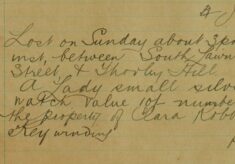 Lost on Sunday about 3p
inst, between South Lawn
Street & Thorley Hill
A Lady small silv
watch value 10/ numbe
the property of Clara Robb
Key winding